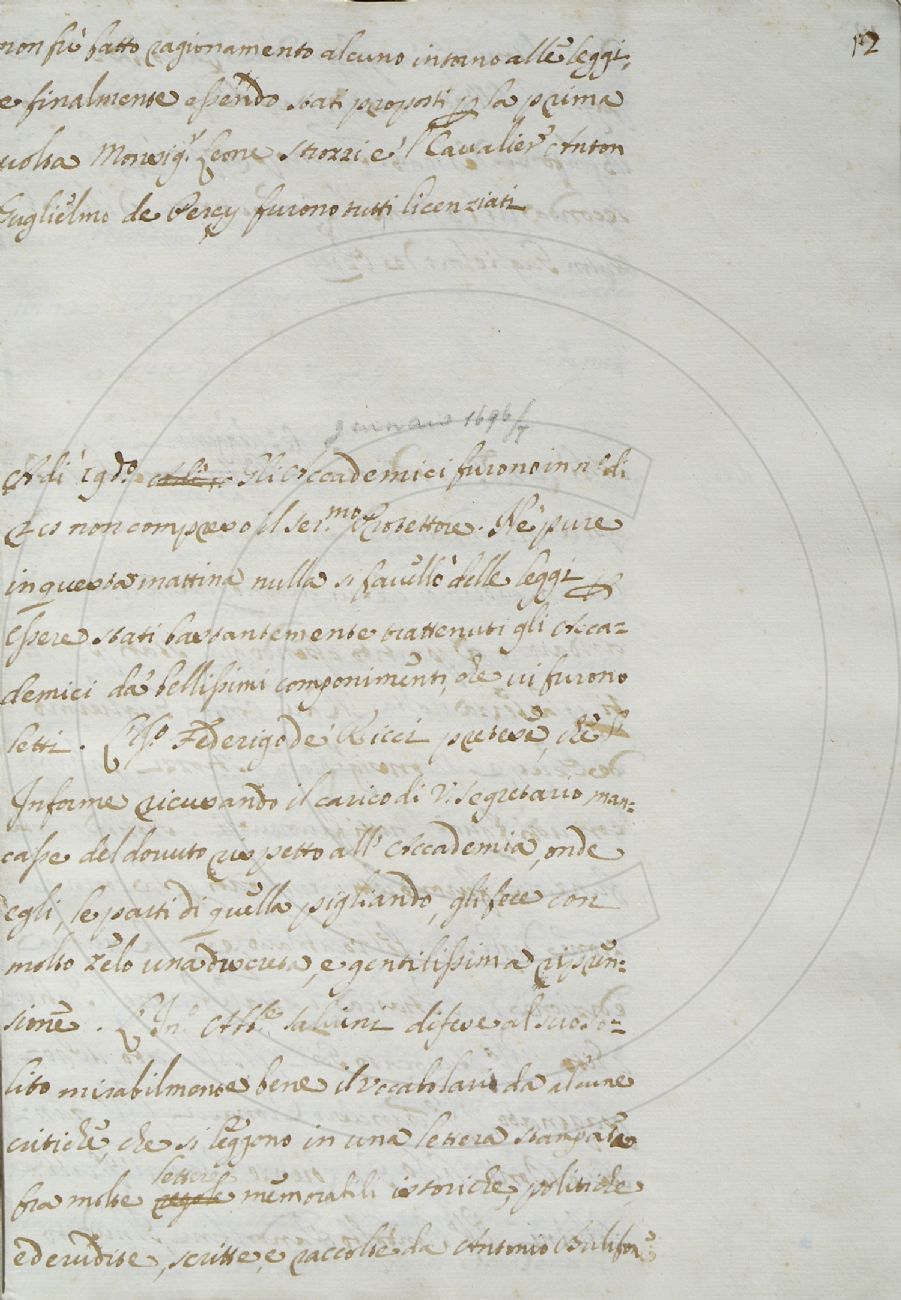 12
non fù fatto ragionamento alcuno intorno alle leggi,
e finalmente essendo stati proposti p la prima
volta Monsig.r Leone Strozzi e 'l Cavalier Anton
Guglielmo de Percy furono tutti licenziati
gennaio 1696/7
A di 19 d.o Gli Accademici furono in n.o di
e non comparve il Ser.mo Protettore. Nè pure
in questa mattina nulla si favellò delle leggi p
essere stati bastantemente trattenuti gli Acca=
demici da' bellissimi componimenti, che vi furono
letti. Federigo de' Ricci pretese, che l'
Informe ricusando il carico di V. Segretario, man=
casse del dovuto rispetto all' Accademia, onde
egli, le parti di quella pigliando, gli fece con
molto zelo una discreta, e gentilissima ripren=
sione. L' In.o Ab.te Salvini difese al suo so=
lito mirabilmente bene il Vocabolario da alcune
critiche, che si leggono in una lettera stampata
fra molte lettere memorabili istoriche, politiche
ed erudite, scritte, e raccolte da Antonio Bulifon